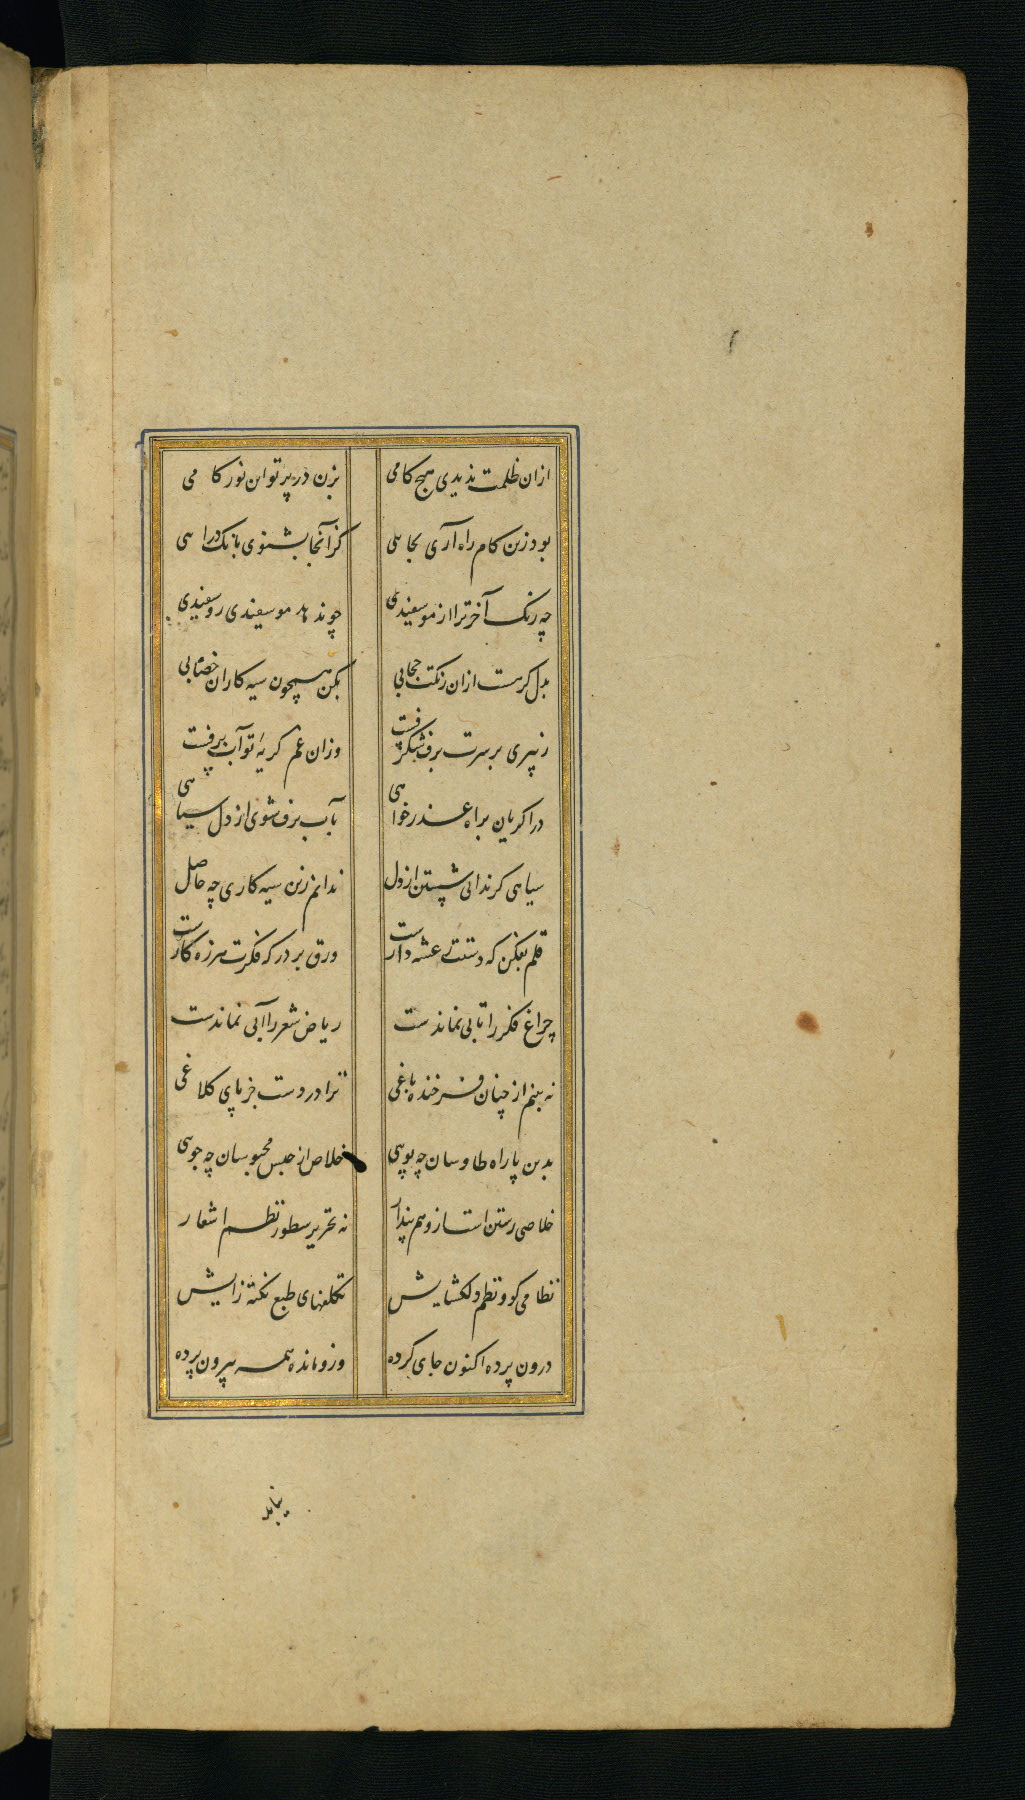 ازان ظلمت ندیدی هیچ کامی بزن در پرتو این نور کامی
بود زین کام راه آری بجایی کز آنجا بشنوی بانک درایی
چه رنک آخر ترا از مو سفیدی چو ندهد مو سفیدی رو سفیدی
بدل کرهست ازان رنکت حجابی بکن همچون سیه کاران خضابی
ز پیری بر سرت برف شکرفست وزان غم کریهٔ تو آب برفست
درا کریان براه عذر خواهی بآب برف شوی از دل سیاهی
سیاهی کر ندانی شستن از دل ندانم زین سیه کاری چه حاصل
قلم بفکن که دستت رعشه دارست ورق بر در که فکرت هرزه کارست
چراغ فکر را تابی نماندست ریاض شعر را آبی نماندست
نه بینم از چنان فرخنده باغی ترا در دست جز پای کلاغی
بدین پا راه طاوسان چه پویی خلاص از حبس محبوسان چه جویی
خلاصی رستن است از وهم پندار نه تحریر سطور نظم اشعار
نظامی کو و نظم دلکشایش تکلفهای طبع نکته زایش
درون پرده اکنون جای کرده وزو مانده همه بیرون پرده
نیابد